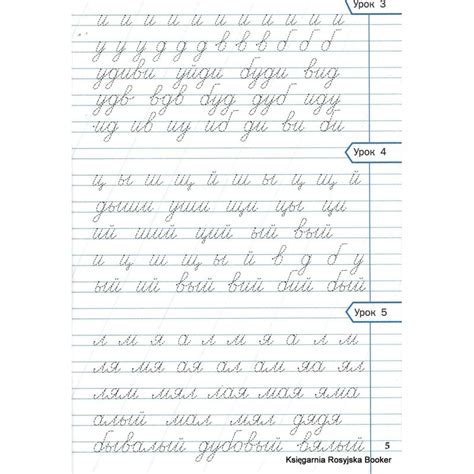 Урок 3
и и и и и и и и и и и
у у у д д д в в в б б б
удиви уйди буди вид
удв вдв буд дуб иду
ид ив иу иб ди ви би
Урок 4
ц ы ш щ й ш ы ц щ й
дыши уши щи цы ци
ий ший щий ый вый
и ц ш щ ы й в д б у
ый ий вый вий бий бый
Урок 5
л м я а л м я а л м
ля мя ая ал ам яа ял
лям мял лая мая яма
алый мал мял дядя
бывалый дубовый вялый
5
Księgarnia Rosyjska Booker